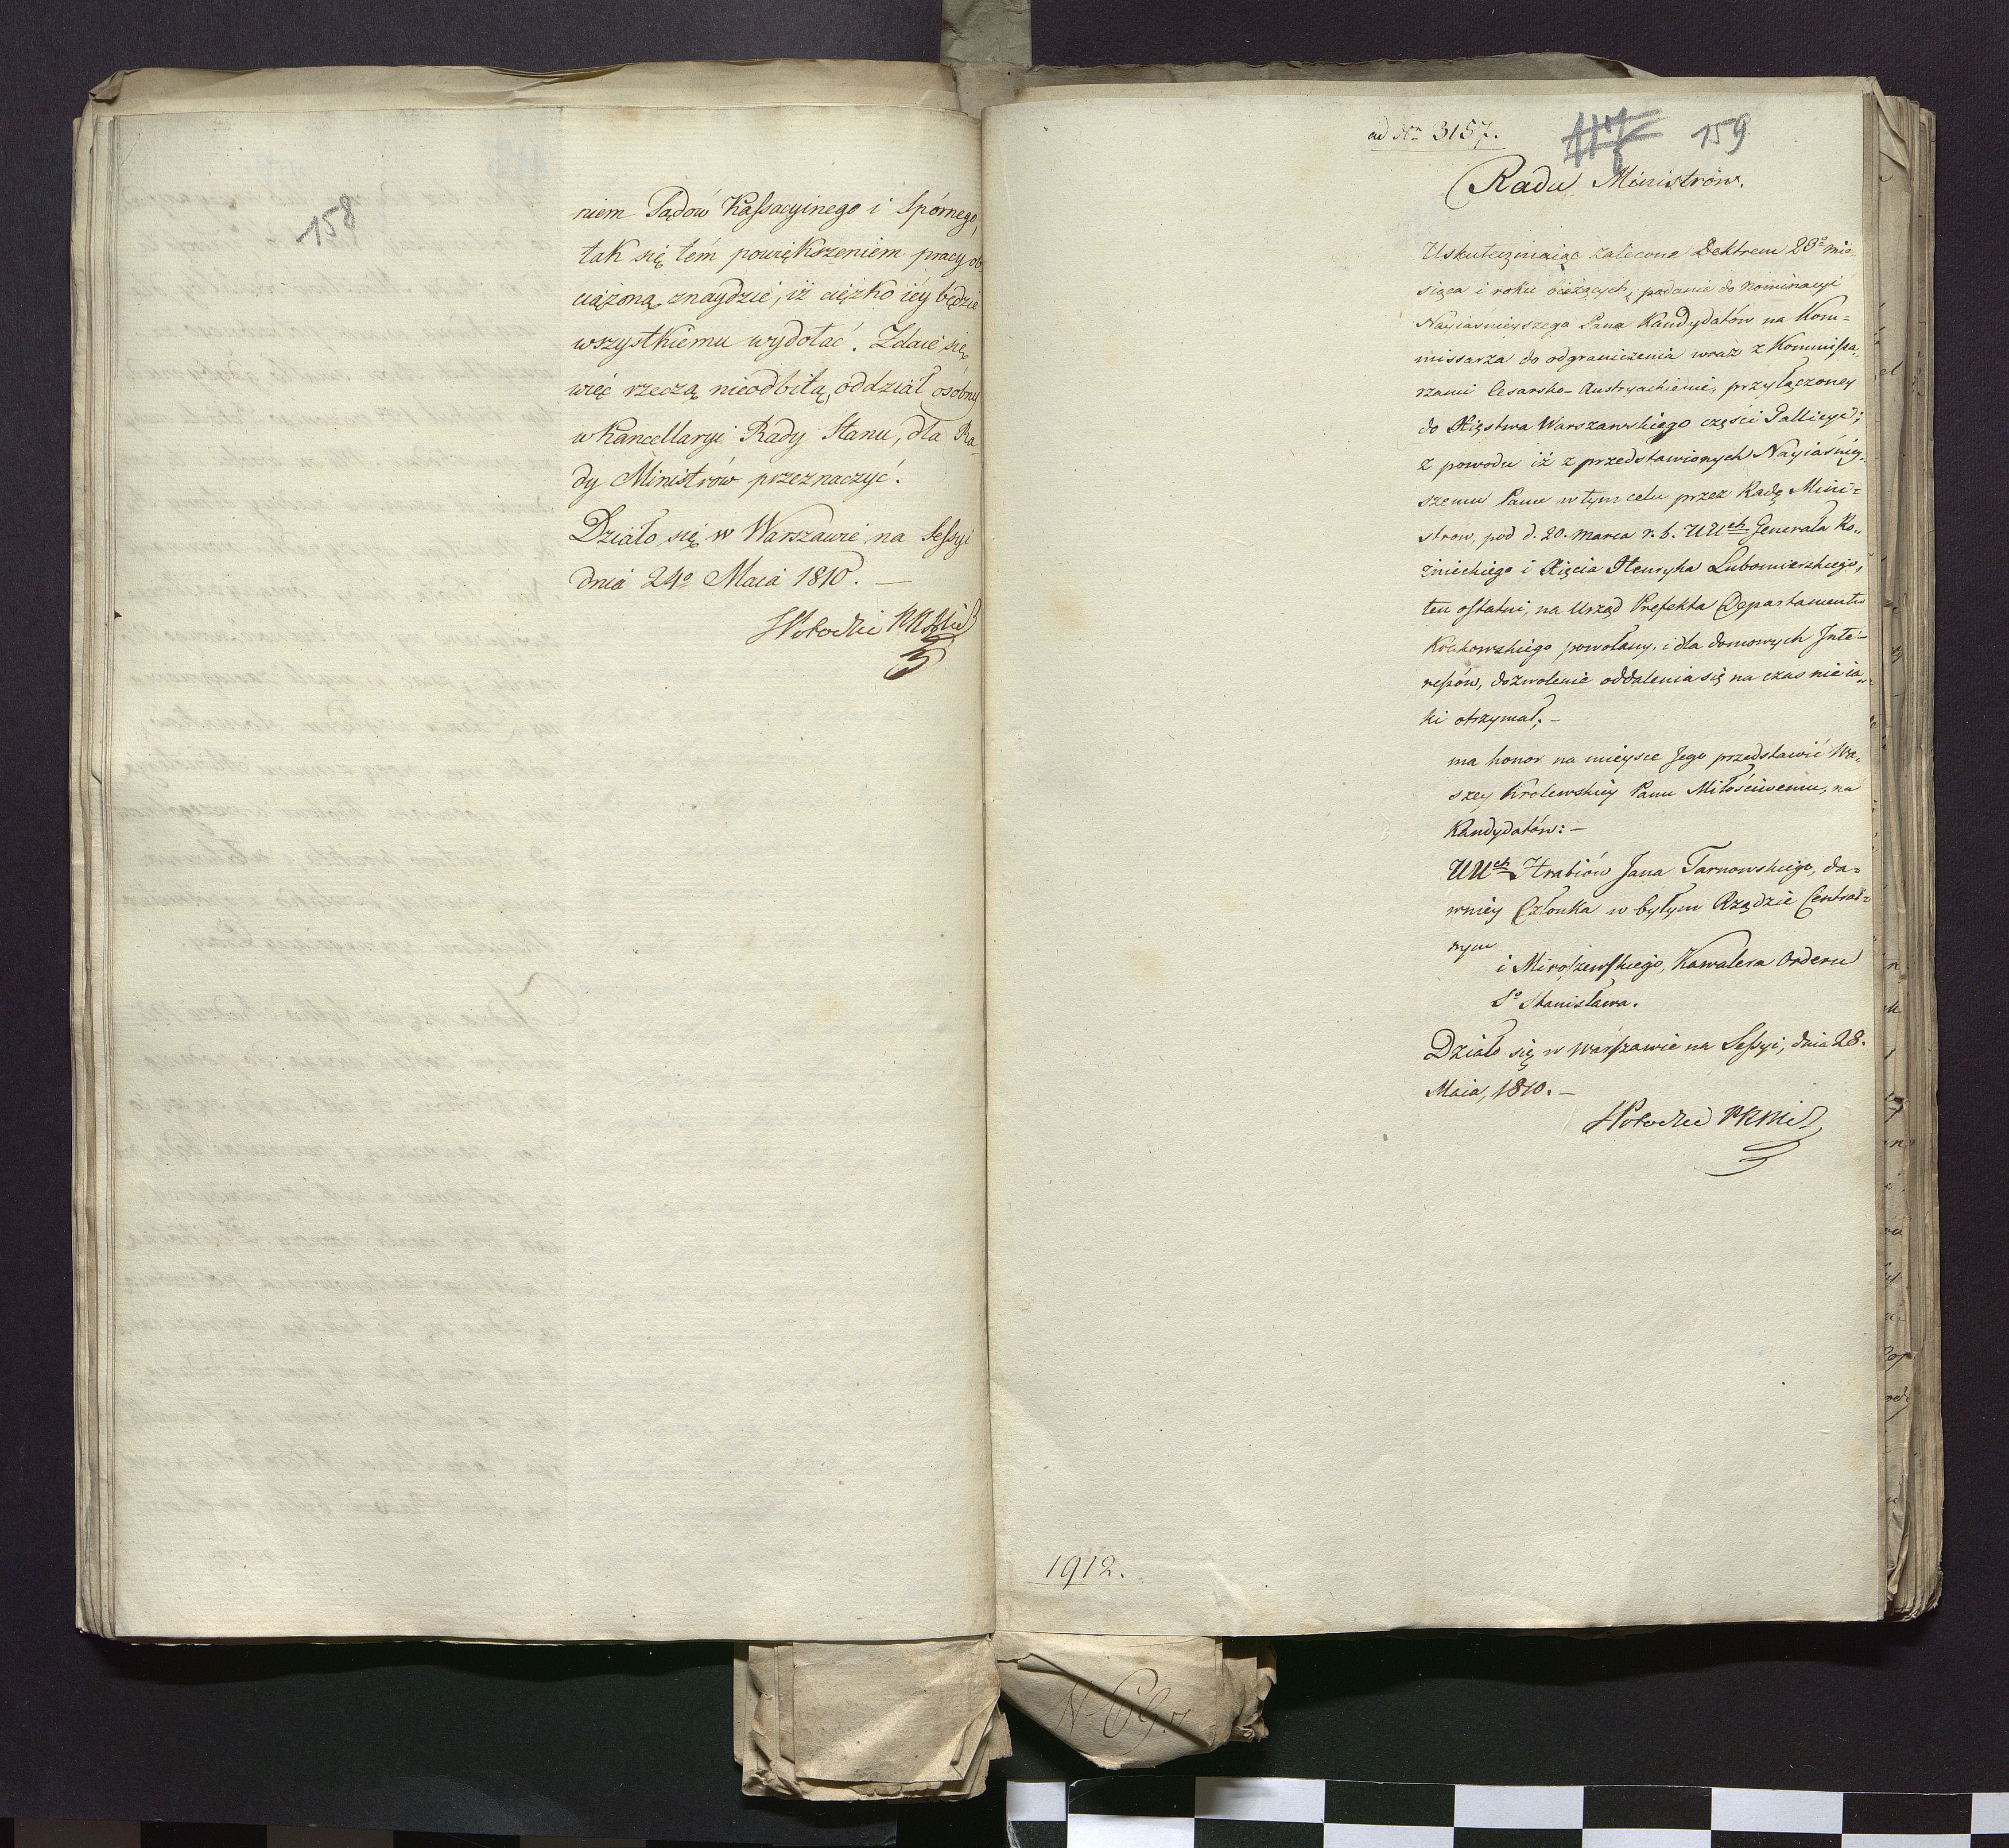 158
niem Sądów Kassacyinego i Spórnego,
tak się tém powiększeniem pracy ob
ciążoną znaydzie, iż ciężko iéy będzie
wszystkiemu wydołać. Zdaie się
więc rzeczą nieodbitą, oddział osóbny
w Kancellaryi Rady Stanu, dla Ra-
dy Ministrów przeznaczyć.
Działo się w Warszawie na Sessyi
dnia 24º Maia 1810. —
ad Nrm 3157.
159
Rada Ministrów.
Uskuteczniaiąc zalecone Dektrem 23º mie-
siąca i roku bieżących, podanie do nominacyi
Nayiaśnieyszego Pana Kandydatów na Kom=
missarza do odgraniczenia wraz z Kommissa-
rzami Cesarsko-Austryackiemi, przyłączoney
do Xięstwa Warszawskiego części Gallicyi;
z powodu iż z przedstawionych Nayiaśniey-
szemu Panu w tym celu przez Radę Mini=
strow, pod d. 20. Marca r. b. UUch Generała Ro-
żnieckiego i Xięcia Henryka Lubomirskiego,
ten ostatni, na Urząd Prefekta Departamentu
Krakowskiego powołany, i dla domowych Inte-
ressów, dozwolenie oddalenia się na czas nieia-
ki otrzymał; –
ma honor na mieysce Jego przedstawić Wa-
szey Krolewskiey Panu Miłościwemu, na
Kandydatów: –
UUch Hrabiów Jana Tarnowskiego, da=
wniey Członka w byłym Rządzie Central=
nym
i Miroszewskiego, Kawalera Orderu
Sº Stanisława.
Działo się w Warszawie na Sessyi, dnia 28.
Maia, 1810. –
1912.